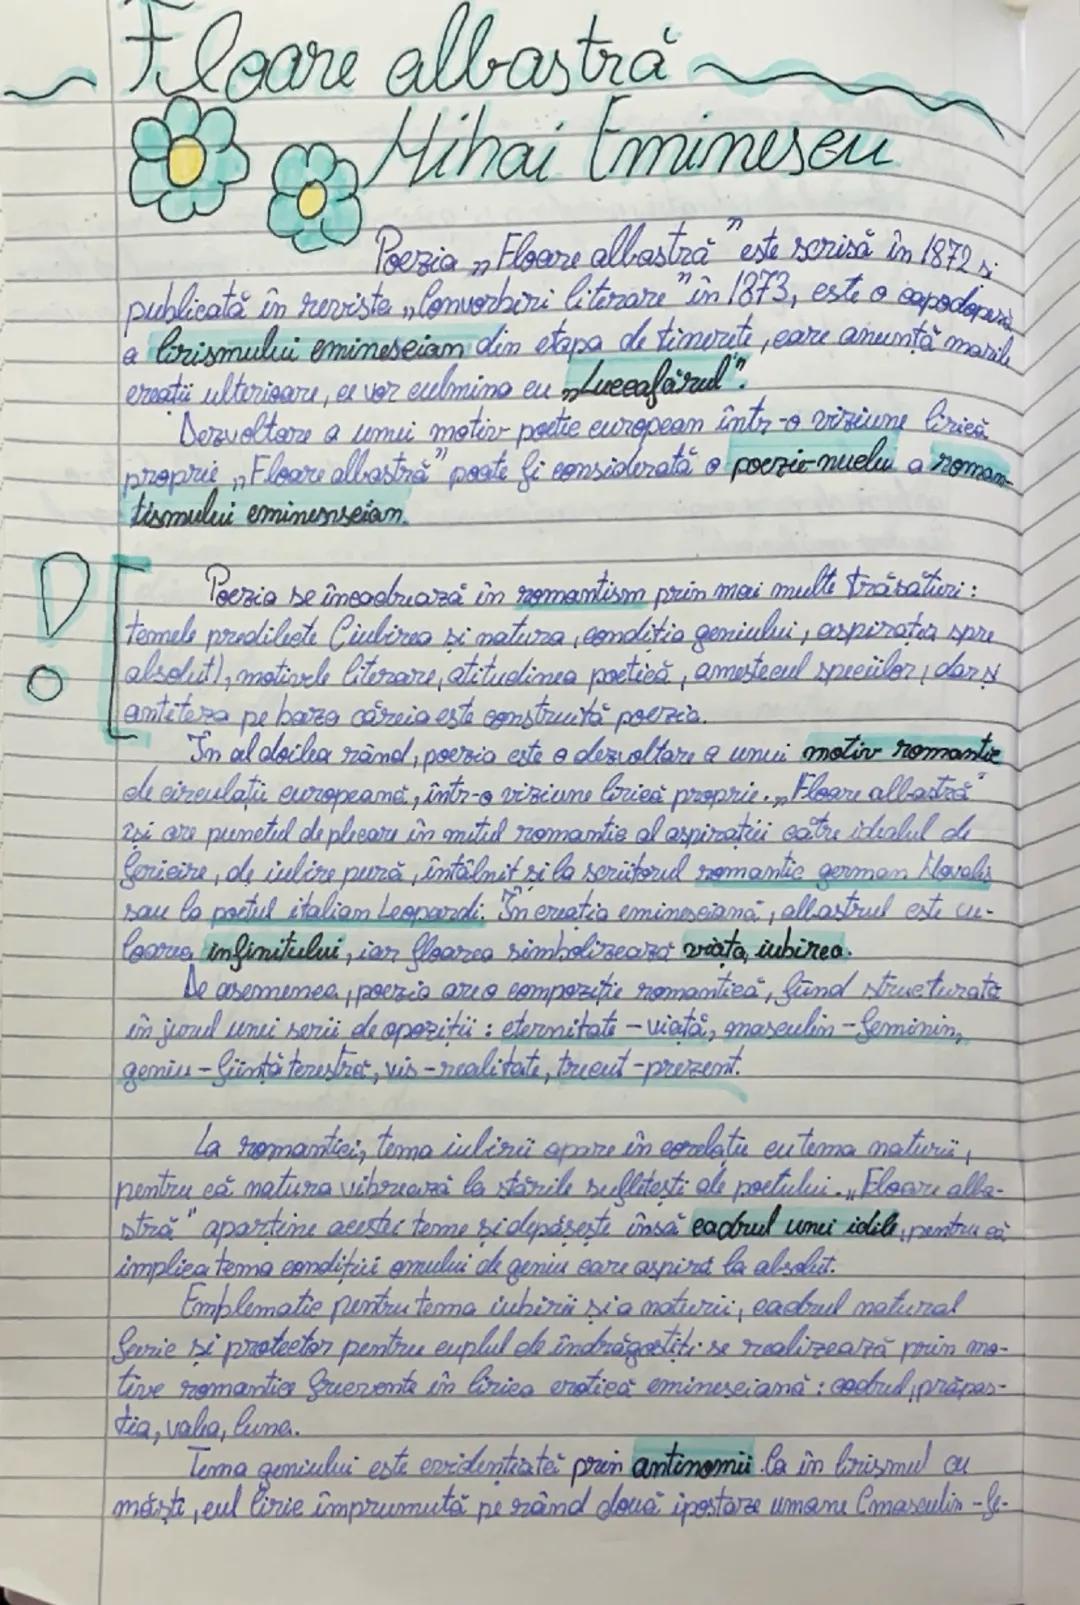 Floare albastră
Mihai Eminescu
Poezia „Floare albastră" este scrisă în 1872 și
publicată în revista „Convorbiri literare" în 1873, este o capodoperă
a lirismului eminescian din etapa de tinerețe, care anunță marile
creații ulterioare, ce vor culmina cu „Luceafărul".
Dezvoltare a unui motiv poetic european într-o viziune lirică
proprie „Floare albastră" poate fi considerată o poezie-nucleu a roman-
tismului eminesscian.
Poezia se încadrează în romantism prin mai multe trăsături:
temele predilecte (iubirea și natura, condiția geniului, aspirația spre
absolut), motivele literare, atitudinea poetică, amestecul speciilor, dar și
antiteza pe baza căreia este construită poezia.
În al doilea rând, poezia este o dezvoltare a unui motiv romantic
de circulație europeană, într-o viziune lirică proprie. „Floare albastră"
își are punctul de plecare în mitul romantic al aspirației către idealul de
fericire, de iubire pură, întâlnit și la scriitorul romantic german Novalis
sau la poetul italian Leopardi. În creația eminesciană, albastrul este cu-
loarea infinitului, iar floarea simbolizează viața, iubirea.
De asemenea, poezia are o compoziție romantică, fiind structurată
în jurul unei serii de opoziții: eternitate - viață, masculin - feminin,
geniu - ființă terestră, vis - realitate, trecut - prezent.
La romantici, tema iubirii apare în corelație cu tema naturii,
pentru că natura vibrează la stările sufletești ale poetului. „Floare alba-
stră" aparține acestei teme și depășește însă cadrul unei idile, pentru că
implica tema condiției omului de geniu care aspiră la absolut.
Emblematic pentru tema iubirii și a naturii, cadrul natural
feeric și protector pentru cuplul de îndrăgostiți se realizează prin mo-
tive romantice frecvente în lirica erotică eminesciană: codrul, prăpas-
tia, valea, luna.
Tema geniului este evidențiată prin antinomii. Ca în lirismul cu
măști, eul liric împrumută pe rând două ipostaze umane (masculin - fe-